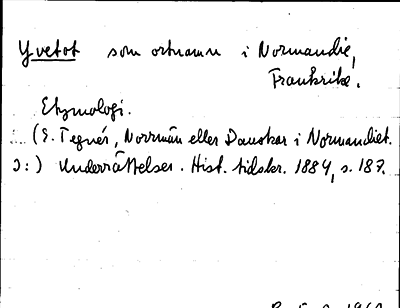 Yvetot som ortnamn i Normandie,
Frankrike.
Etymologi.
(E. Tegnér, Norrmän eller Danskar i Normandiet.
?:) Underrättelser. Hist. tidskr. 1884, s. 187.